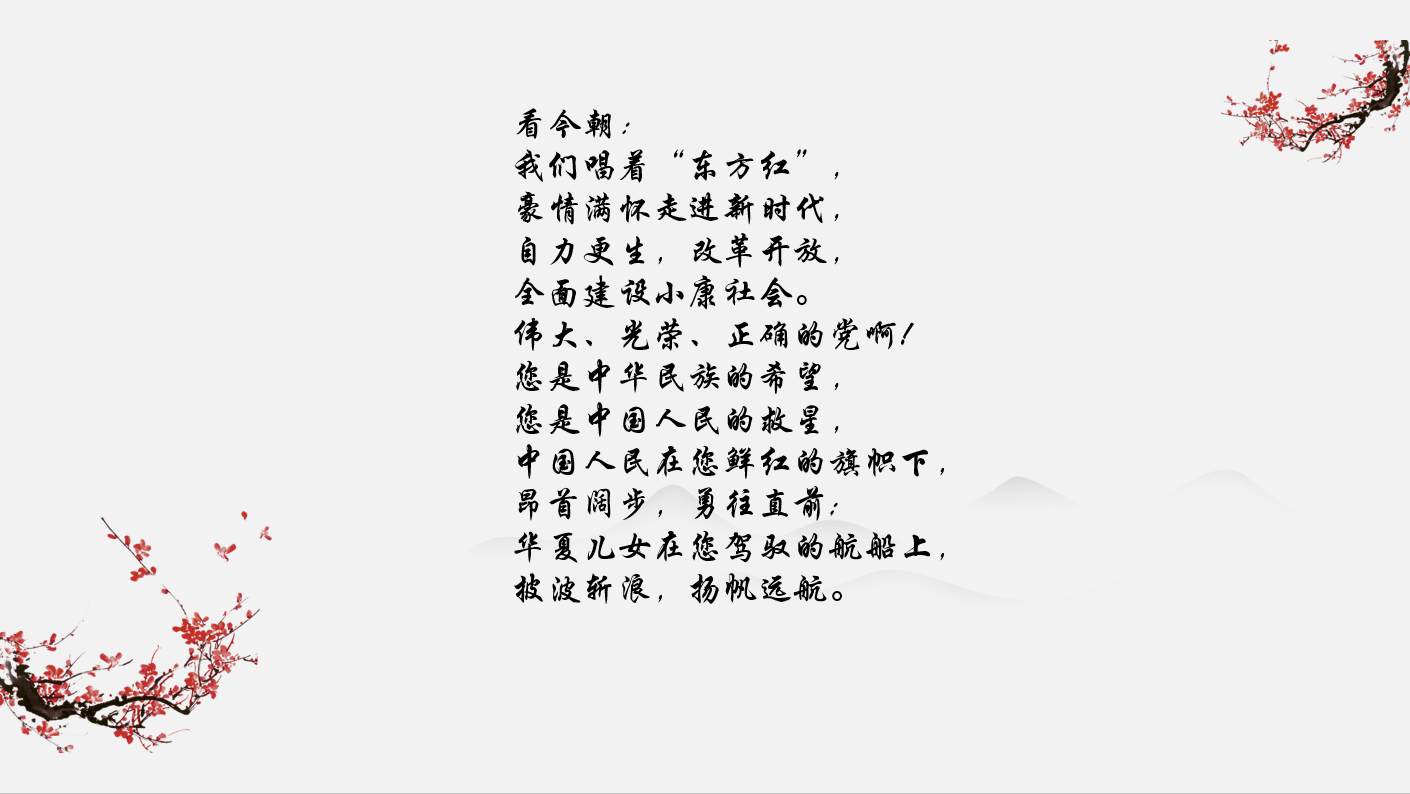 看今朝：
我们唱着“东方红”，
豪情满怀走进新时代，
自力更生，改革开放，
全面建设小康社会。
伟大、光荣、正确的党啊！
您是中华民族的希望，
您是中国人民的救星，
中国人民在您鲜红的旗帜下，
昂首阔步，勇往直前；
华夏儿女在您驾驭的航船上，
披波斩浪，扬帆远航。